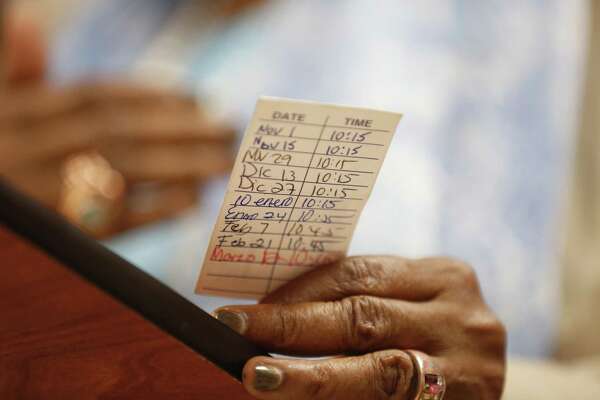 DATE TIME
Nov 1 10:15
Nov 15 10:15
Nov 29 10:15
Dic 13 10:15
Dic 27 10:15
10 enero 10:15
Enero 24
Feb 7 10:45
Feb 21 10:45
Marzo